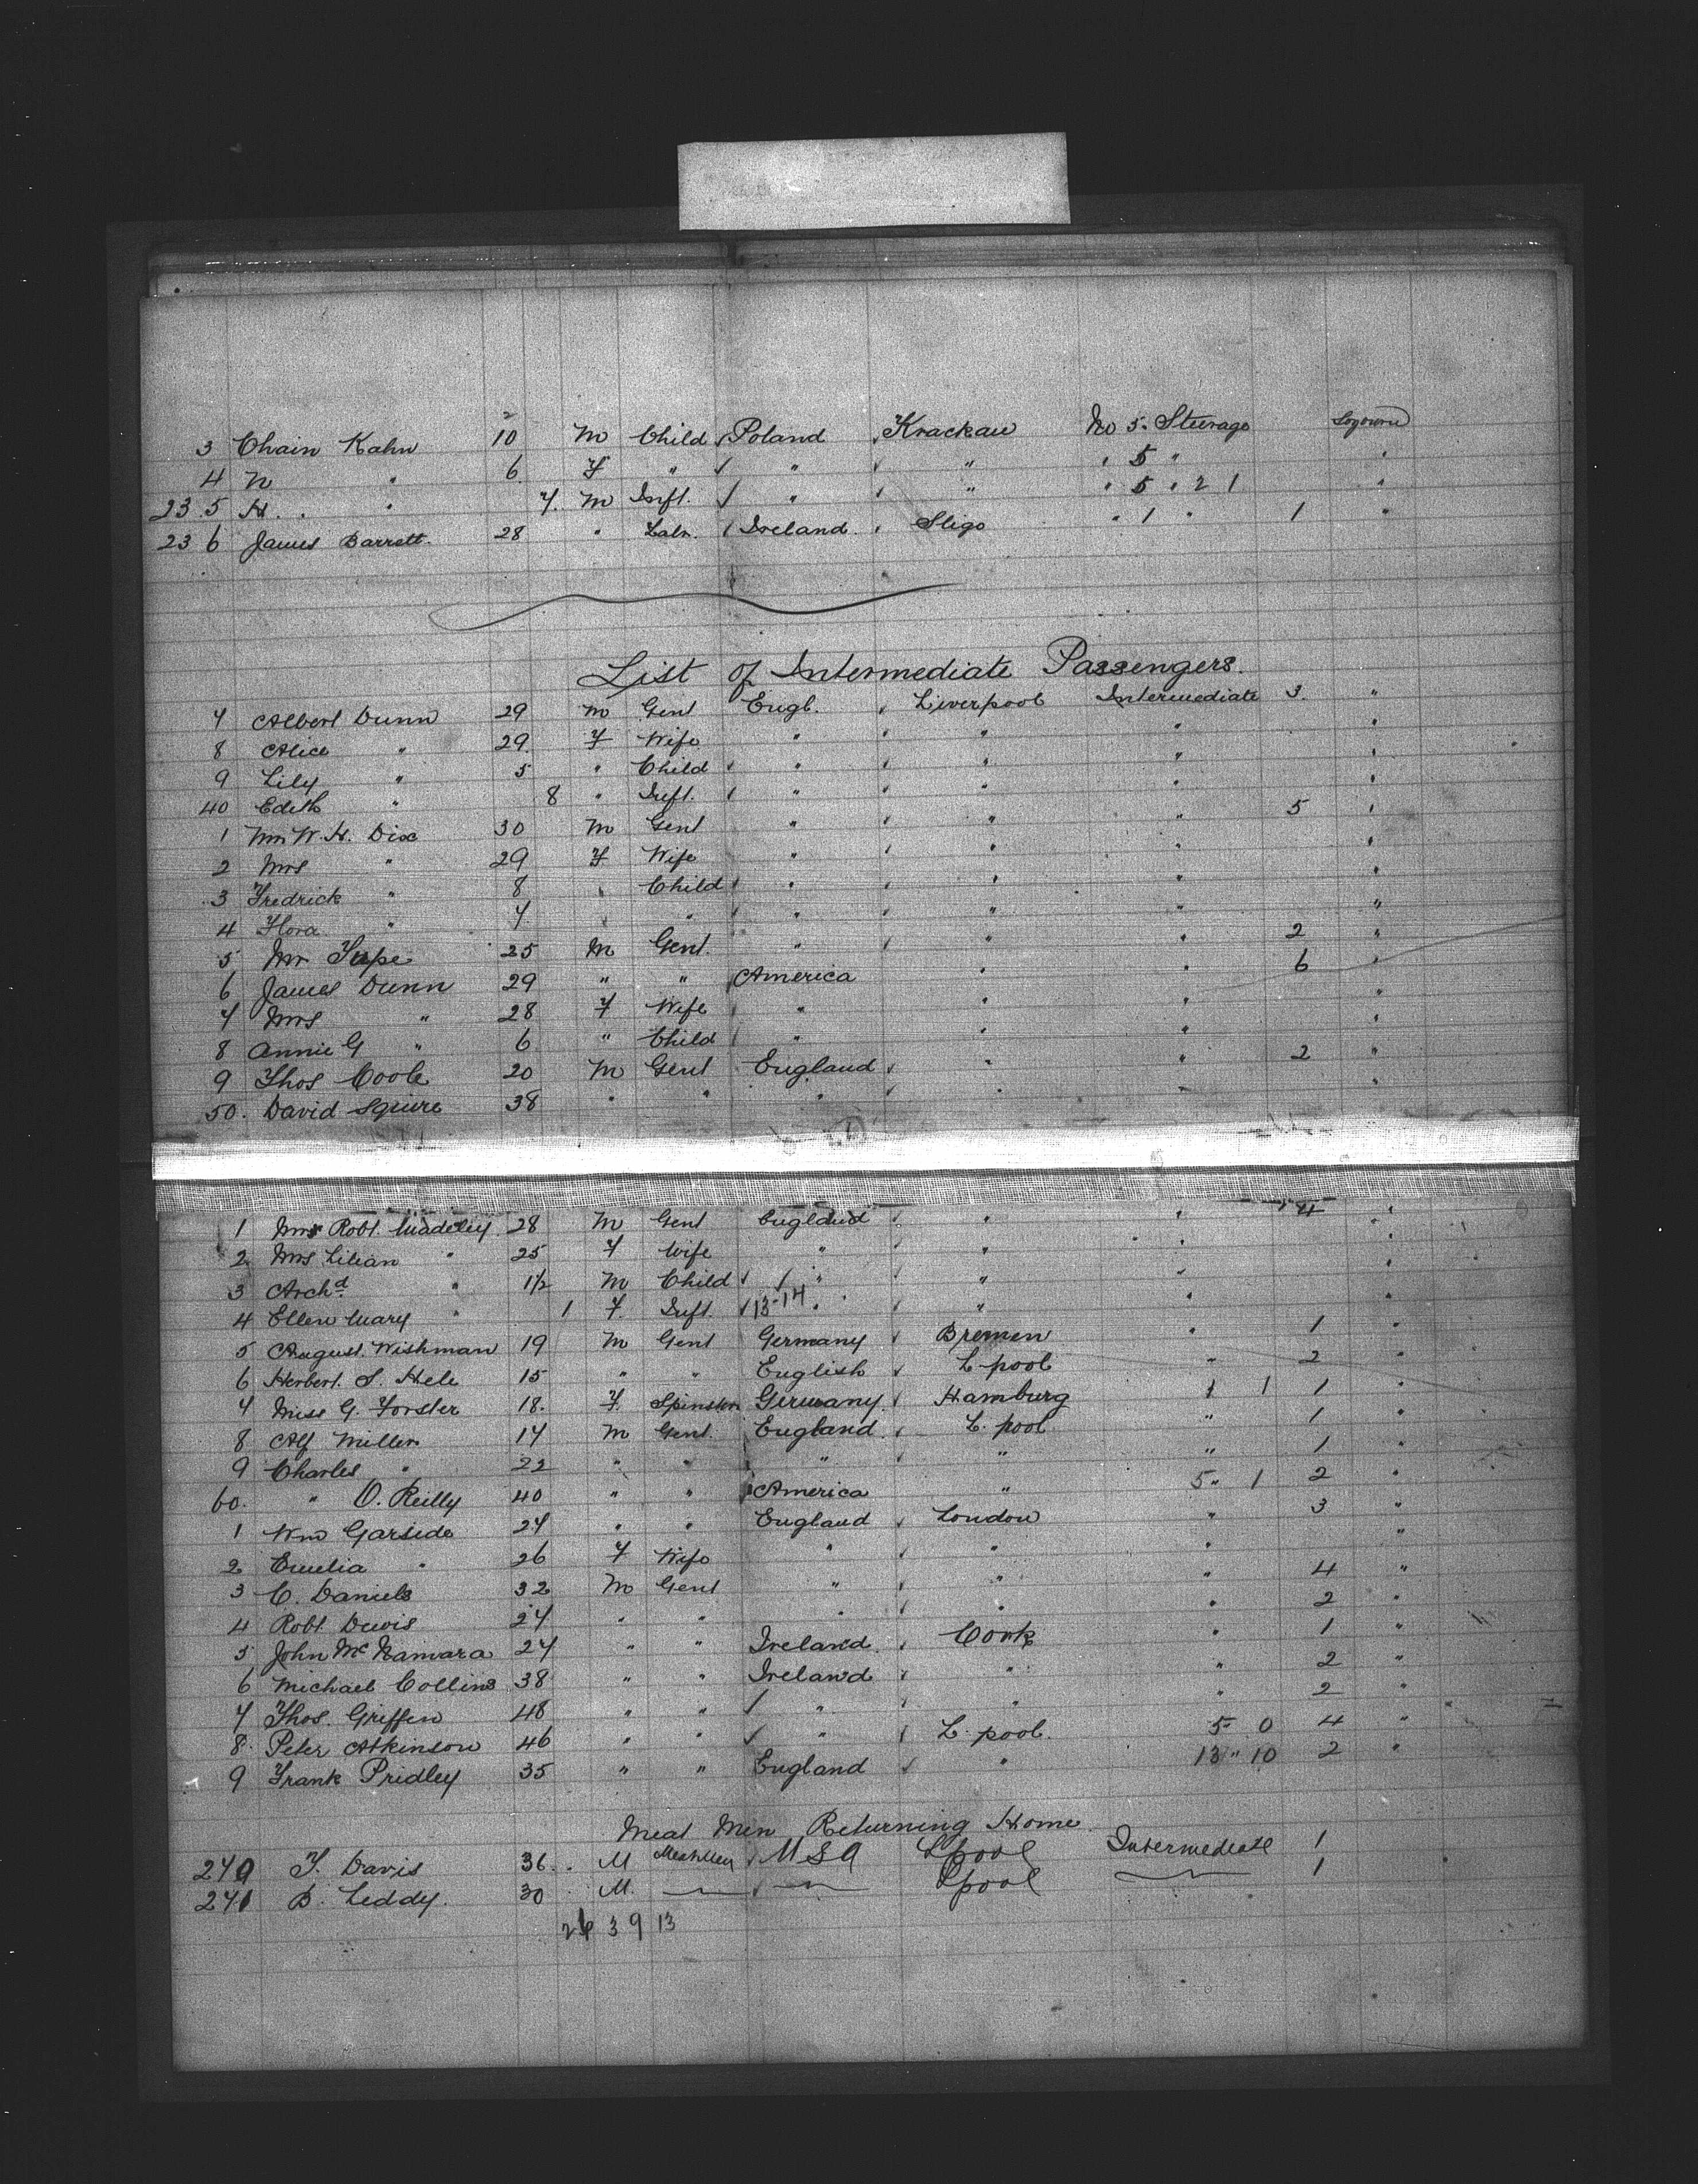 3 Chain Kahn 10 M Child Poland Krackau No 5 Steerage Sojourn
4 N " 6 F " " " " 5 " "
23 5 H. " 7. M Inft. " " " 5 " 2 1 "
23 6 James Barrett. 28 " Labr. Ireland Sligo " 1 " 1 "
List of Intermediate Passengers.
7 Albert Dunn 29 M Gent Engl. Liverpool Intermediate 3. "
8 Alice " 29. F Wife " " " "
9 Lily " 5 " Child " " " "
40 Edith " 8 " Inft. " " " "
1 Mr W. H. Dix 30 M Gent " " " 5 "
2 Mrs " 29 F Wife " " " "
3 Fredrick " 8 " Child " " " "
4 Flora " 7. " " " " " "
5 Mr Tupe 25 M Gent. " " " 2 "
6 James Dunn 29 " " America " " 6 "
7 Mrs " 28 F Wife " " " "
8 Annie G " 6 " Child " " " "
9 Thos Coole 20 M Gent England " " 2 "
50. David Squire 38 " " " " " "
1 Mr Robt. Madeley 28 M Gent England " " 4 "
2 Mrs Lilian " 25 F Wife " " " "
3 Archd. " 1½ M Child " " " "
4 Ellen Mary " 1 F. Inft. 13-14 " " " "
5 August. Wishman 19 M Gent Germany Bremen " 1 "
6 Herbert. S. Hele 15 " " English L-pool " 2 "
7 Miss G. Forster 18. F. Spinster Germany. Hamburg 1 1 1 "
8 Alf Miller 14 M Gent. England L. pool " 1 "
9 Charles " 22 " " " " " 1 "
60. " O. Reilly 40 " " America " 5 " 1 2 "
1 Wm Garside 27 " " England London " 3 "
2 Emelia " 26 F Wife " " " "
3 C. Daniels 32 M Gent " " " 4 "
4 Robt. Dewis 27 " " " " " 2 "
5 John McNamara 27 " " Ireland Cork " 1 "
6 Michael Collins 38 " " Ireland " " 2 "
7 Thos. Griffen 48 " " " " " 2 "
8. Peter Atkinson 46 " " " L. pool. 5- 0 4 "
9 Frank Pridley 35 " " England " 13 " 10 2 "
Meat Men Returning Home
270 T. Davis 36. M Meat Men USA Lpool Intermediate 1
271 B. Leddy. 30 M. Lpool 1
26 3 9 13